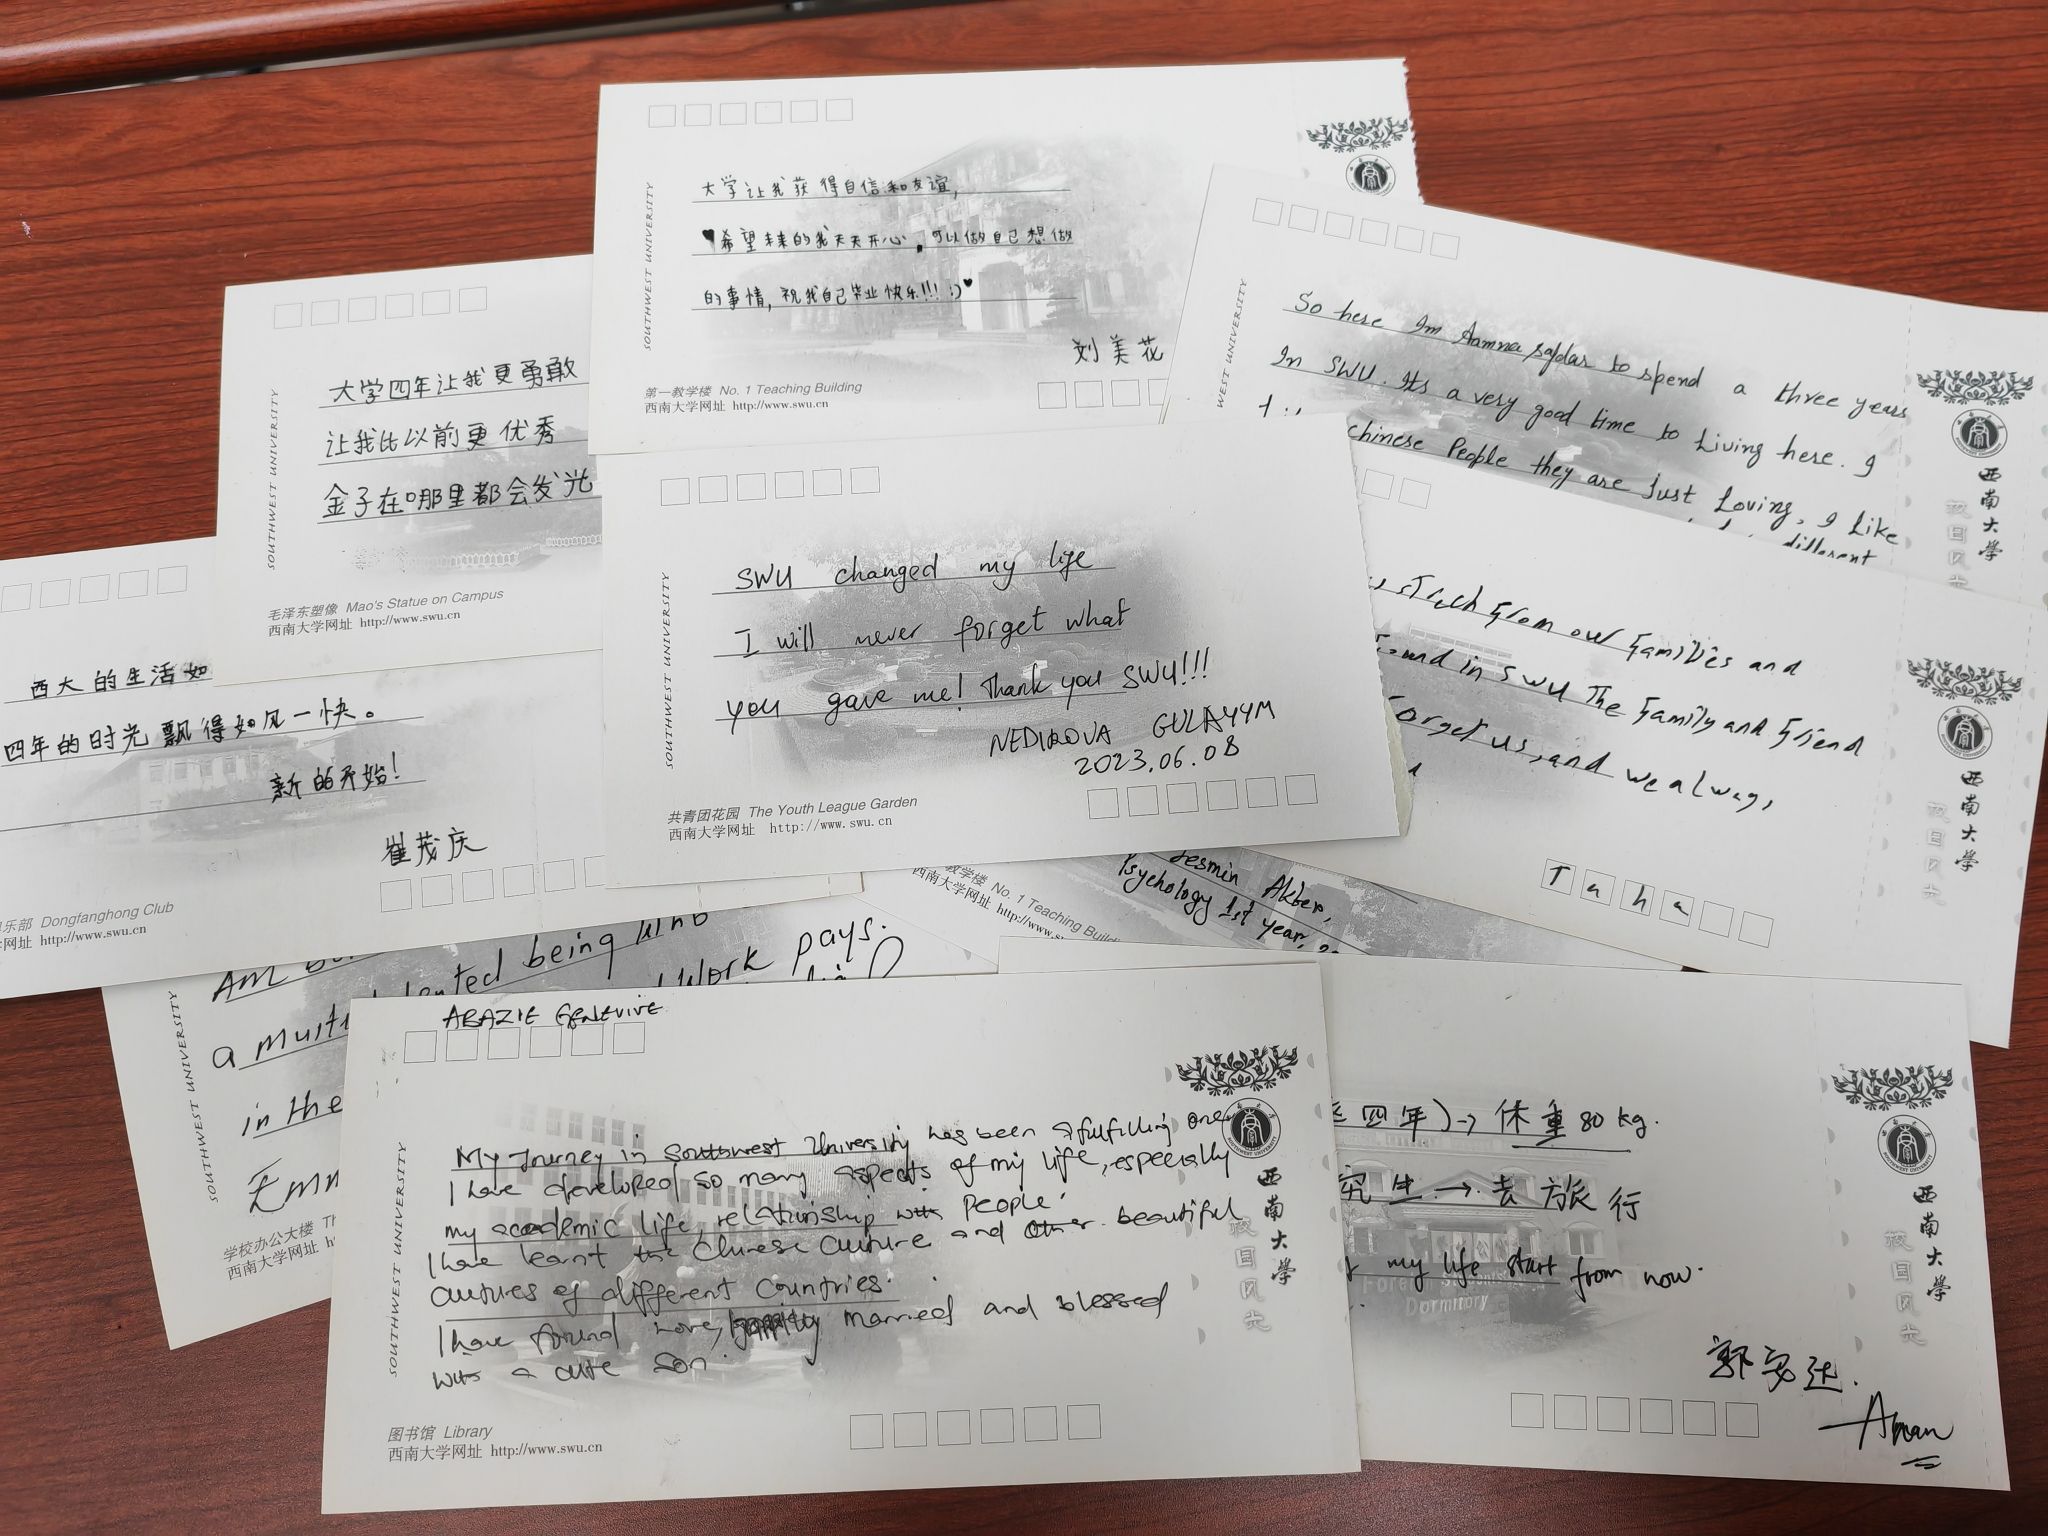 SOUTHWEST UNIVERSITY
大学让我获得自信和友谊,
♥希望未来的我天天开心,可以做自己想做
的事情,祝我自己毕业快乐!!! :)♥
刘美花
第一教学楼 No. 1 Teaching Building
西南大学网址 http://www.swu.cn
SOUTHWEST UNIVERSITY
大学四年让我更勇敢
让我比以前更优秀
金子在哪里都会发光
毛泽东塑像 Mao's Statue on Campus
西南大学网址 http://www.swu.cn
WEST UNIVERSITY
So here Im Aamna safdar to spend a three years
In SWU. Its a very good time to Living here. I
chinese People they are Just Loving, I Like
different
西南大学
校园风光
SOUTHWEST UNIVERSITY
SWU changed my life
I will never forget what
you gave me! Thank you SWU!!!
NEDIROVA GULAYYM
2023.06.08
共青团花园 The Youth League Garden
西南大学网址 http://www.swu.cn
from our families and
found in SWU The family and friend
forget us, and we always
Taha
西南大学
校园风光
西大的生活如
四年的时光飘得如风一快。
新的开始!
崔茂庆
乐部 Dongfanghong Club
网址 http://www.swu.cn
教学楼 No. 1 Teaching Buildi
西南大学网址 http://www.sw
Jesmin Akter,
Psychology 1st year,
SOUTHWEST UNIVERSITY
Am
a mult ented being
work pays.
in the
Emm
学校办公大楼 Th
西南大学网址 ht
ABAZIE GENEVIVE
SOUTHWEST UNIVERSITY
My Journey in Southwest University has been a fulfilling one
I have developed so many aspects of my life, especially
my academic life, relationship with people.
I have learnt the Chinese culture and other beautiful
cultures of different countries.
I have found love, married and blessed
with a cute son.
图书馆 Library
西南大学网址 http://www.swu.cn
西南大学
校园风光
四年)→ 体重80kg.
究生→去旅行
my life start from now.
Dormitory
郭安达.
Aman
西南大学
校园风光